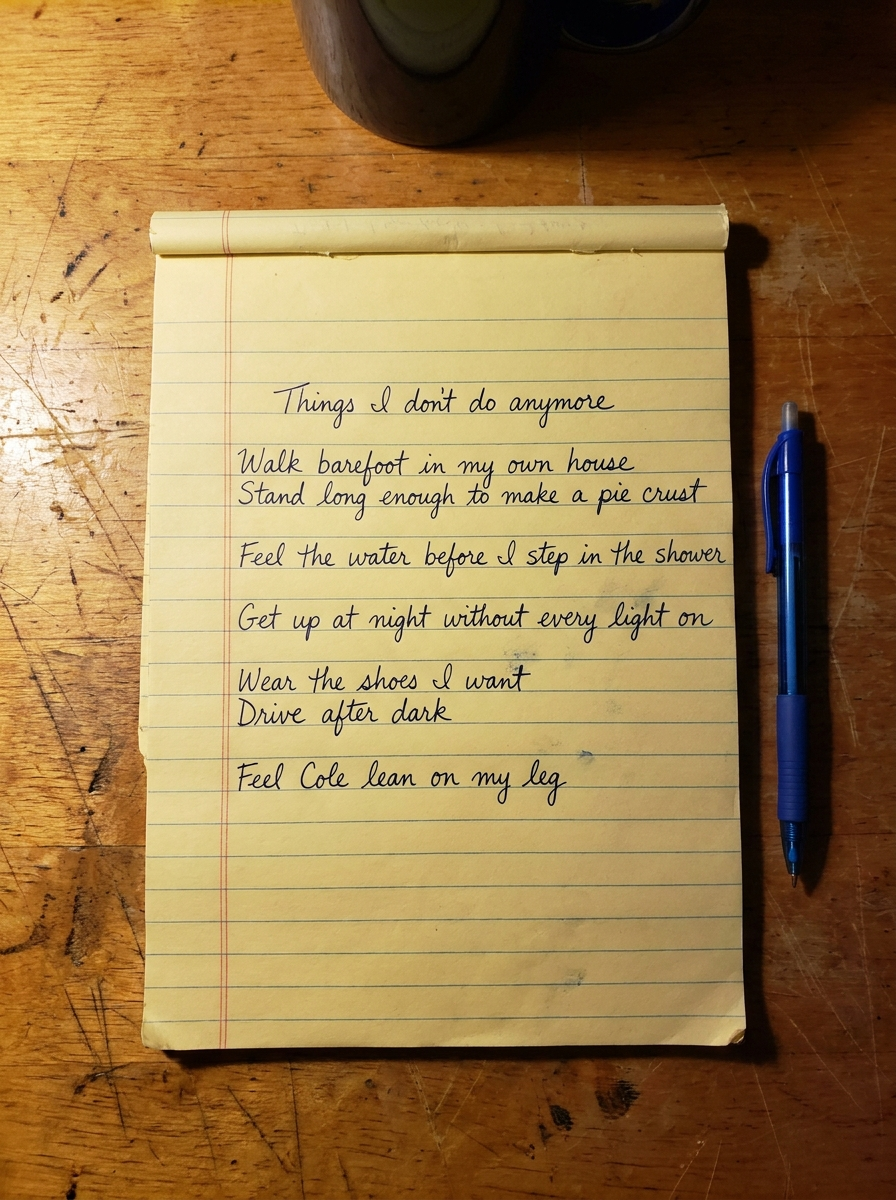 Things I don't do anymore
Walk barefoot in my own house
Stand long enough to make a pie crust
Feel the water before I step in the shower
Get up at night without every light on
Wear the shoes I want
Drive after dark
Feel Cole lean on my leg